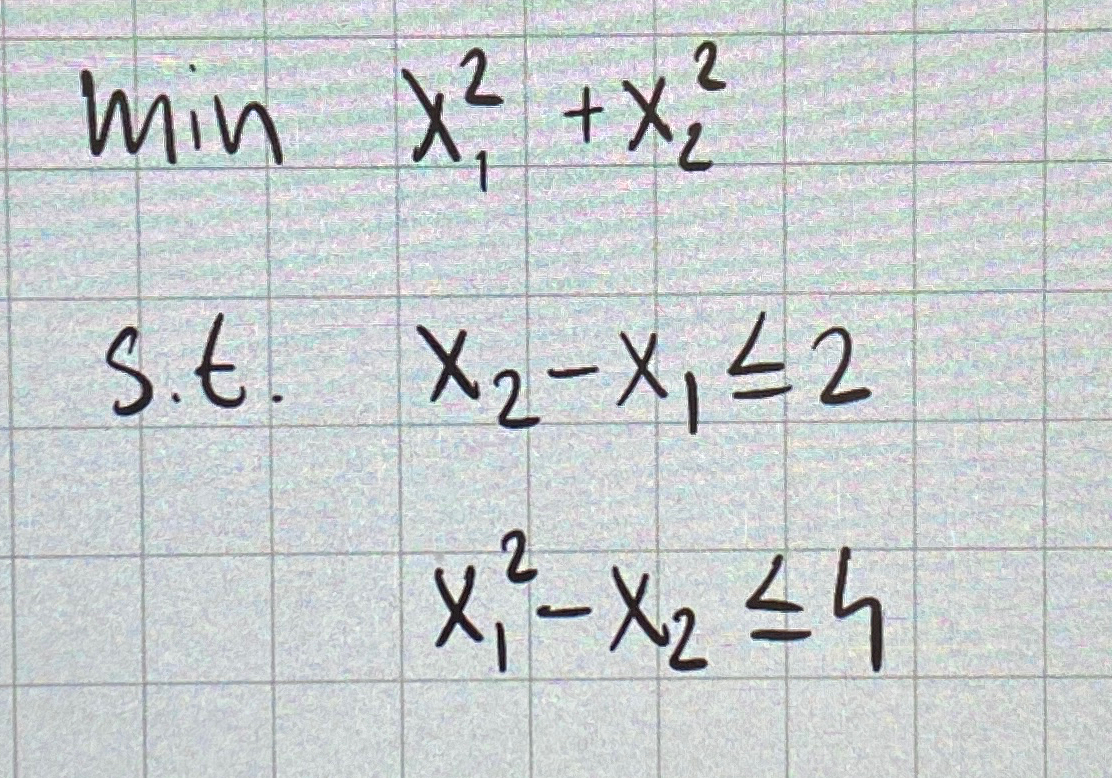 min x₁² + x₂²
s.t. x₂ - x₁ ≤ 2
x₁² - x₂ ≤ 4